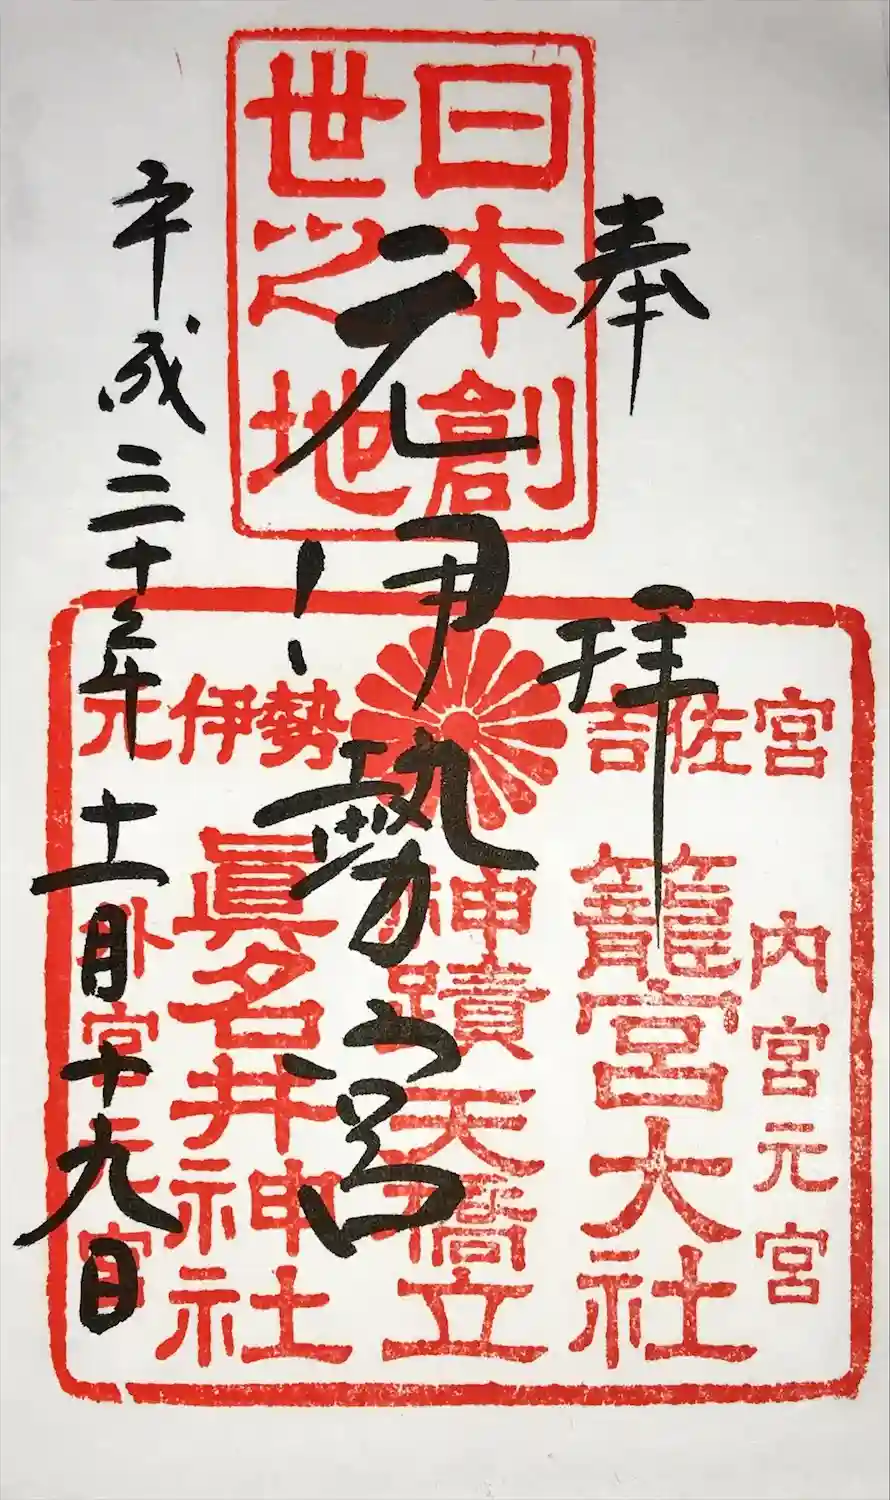 奉拝
元伊勢宮
平成三十年十一月十九日
日本創
世之地
元伊勢 吉佐宮
内宮元宮
籠宮大社
神蹟天橋立
眞名井神社
外宮元宮